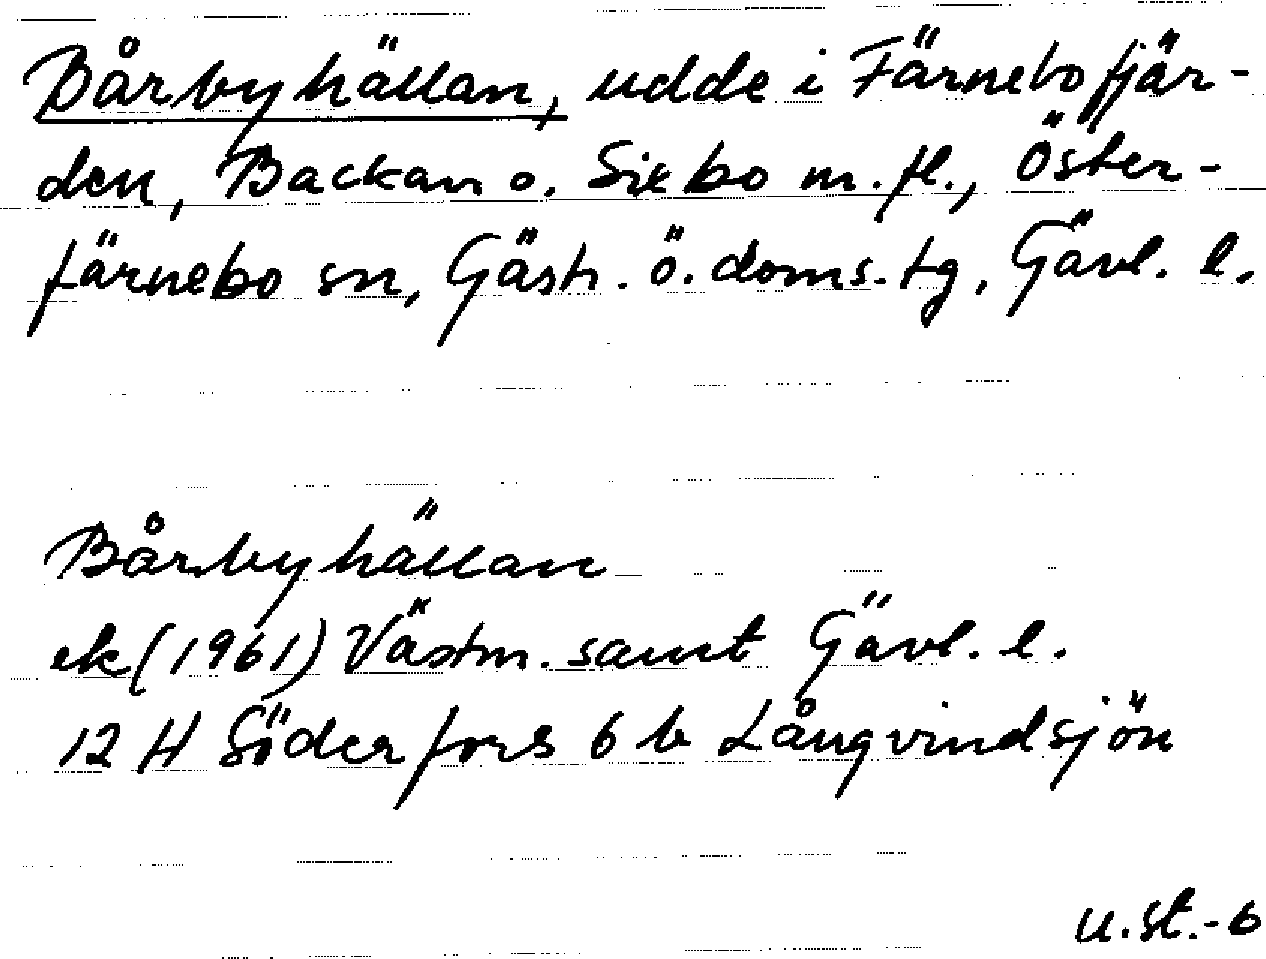 Bårbyhällan, udde i Färnebofjär-
den, Backan o. Sixbo m.fl., Öster-
färnebo sn, Gästr. ö. doms.tg, Gävl. l.
Bårbyhällan
ek (1961) Västm. samt Gävl. l.
12 H Söderfors 6 b Långvindsjön
u.st.-6